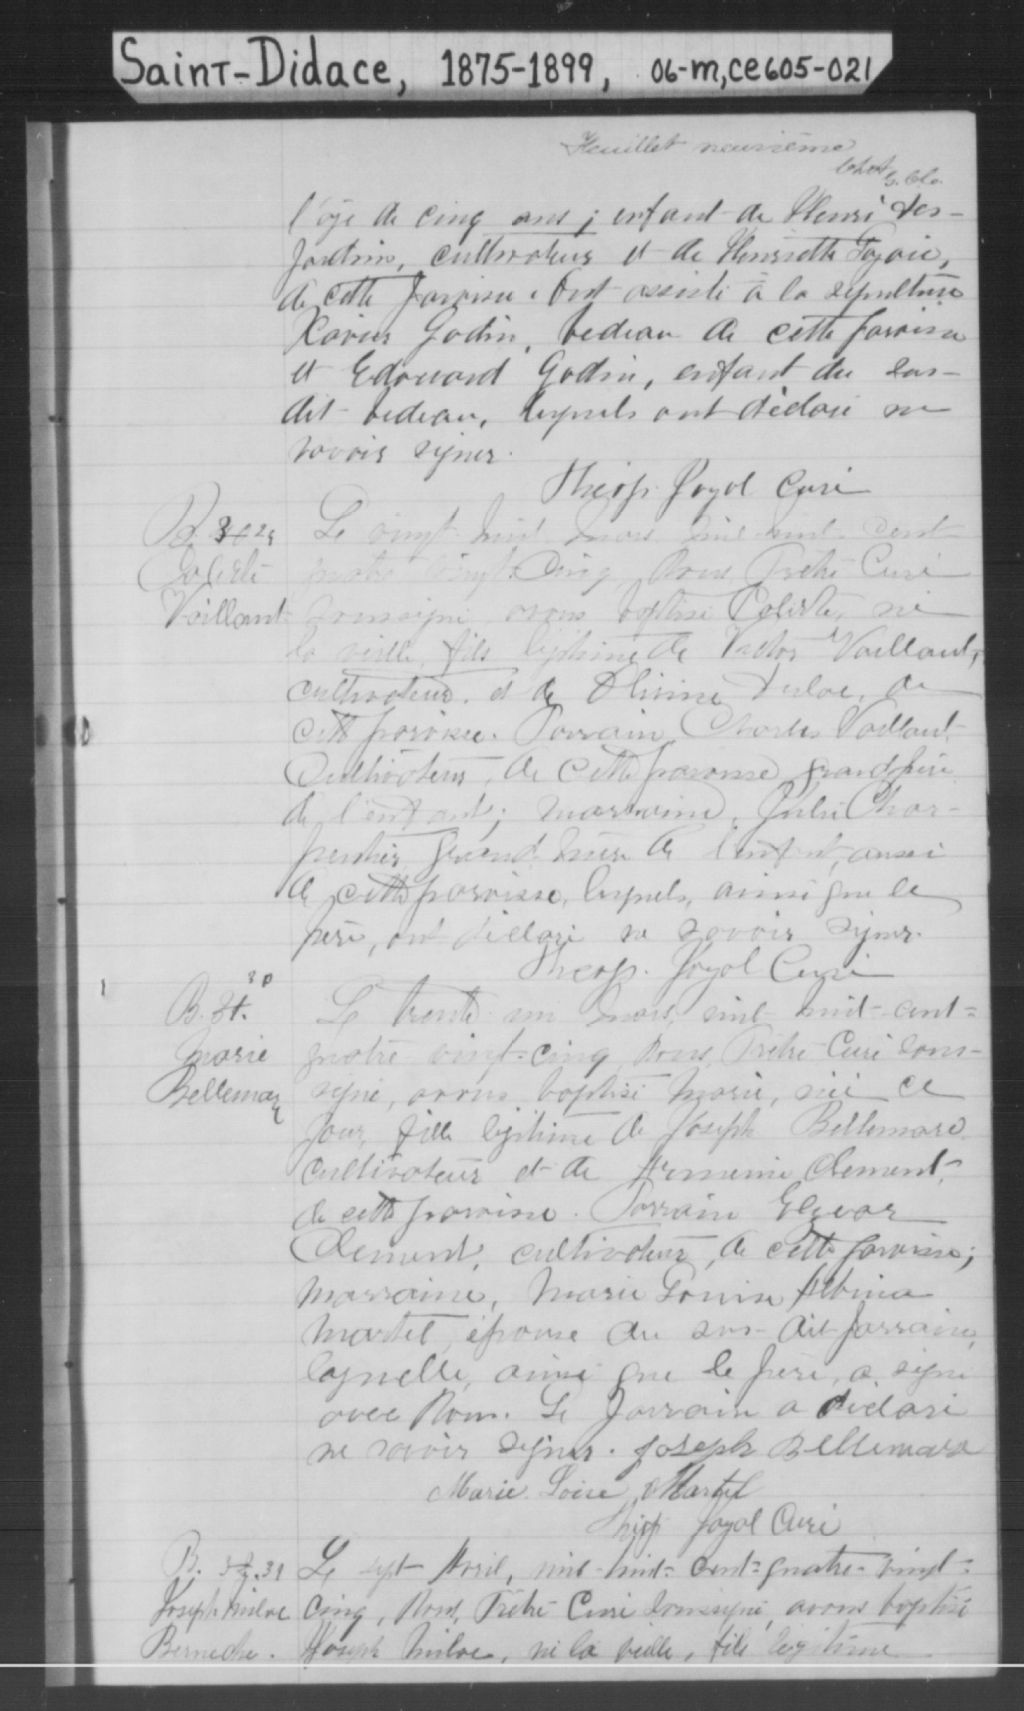 Saint-Didace, 1875-1899, 06-M,CE605-021
Feuillet neuvième
l'âge de cinq ans; enfant de Henri Des-
jardins, cultivateur et de Henriette
de cette paroisse. Ont assisté à la sépulture
Xavier Godin, bedeau de cette paroisse
et Edouard Godin, enfant du sus-
dit bedeau, lesquels ont déclaré ne
savoir signer.
Theop. Joyal Curé
B.
Vaillant
Le vingt huit mars mil huit cent
quatre vingt-cinq Nous Prêtre Curé
soussigné avons baptisé Calixte, né
la veille, fils légitime de Victor Vaillant,
cultivateur, et de Olivine Dulac, de
cette paroisse. Parrain Charles Vaillant
Cultivateur, de cette paroisse grand père
de l'enfant; marraine, Julie Char-
pentier grand mère de l'enfant, aussi
de cette paroisse, lesquels, ainsi que le
père, ont déclaré ne savoir signer.
Theop. Joyal Curé
30
B. 31.
Marie
Bellemare
Le trente un mars, mil huit-cent-
quatre vingt-cinq Nous Prêtre Curé sous-
signé, avons baptisé Marie, née ce
jour, fille légitime de Joseph Bellemare
cultivateur et de Arménie Clement,
de cette paroisse. Parrain Elzear
Clement, cultivateur, de cette paroisse;
marraine, Marie Louise Albina
Martel, épouse du sus-dit parrain,
laquelle, ainsi que le père, a signé
avec Nous. Le parrain a déclaré
ne savoir signer. Joseph Bellemare
Marie Loise Martel
Theop Joyal Curé
B.
Joseph
Berneche.
Le sept Avril, mil-huit-cent-quatre-vingt-
cinq, Nous, Prêtre Curé soussigné, avons baptisé
Joseph, né la veille, fils légitime